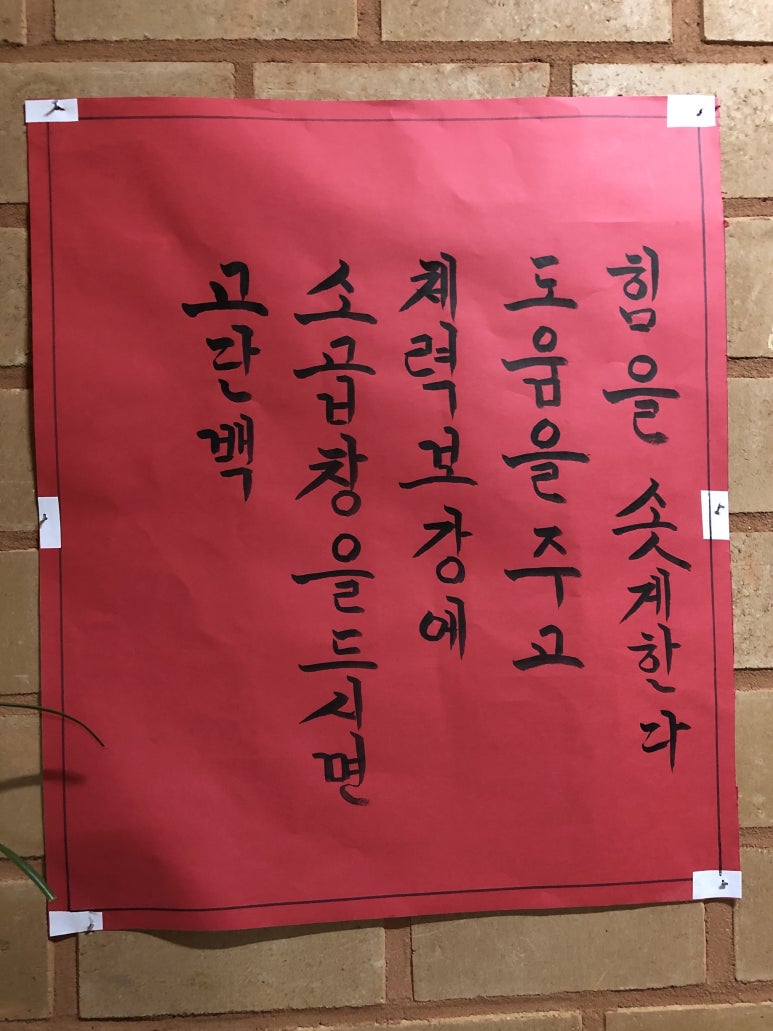 고단백
소곱창을드시면
체력보강에
도움을주고
힘을 솟계한다